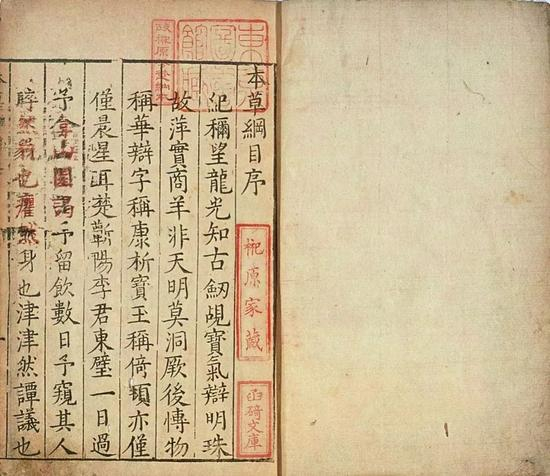 本草綱目序
紀稱望龍光知古劒覘寶氣辯明珠
故萍實商羊非天明莫洞厥後愽物
稱華辯字稱康析寶玉稱倚頓亦僅
僅晨星耳楚蘄陽李君東璧一日過
予弇山園謁予留飲數日予窺其人
睟然貌也癯然身也津津然譚議也
榊原家藏
函碕文庫